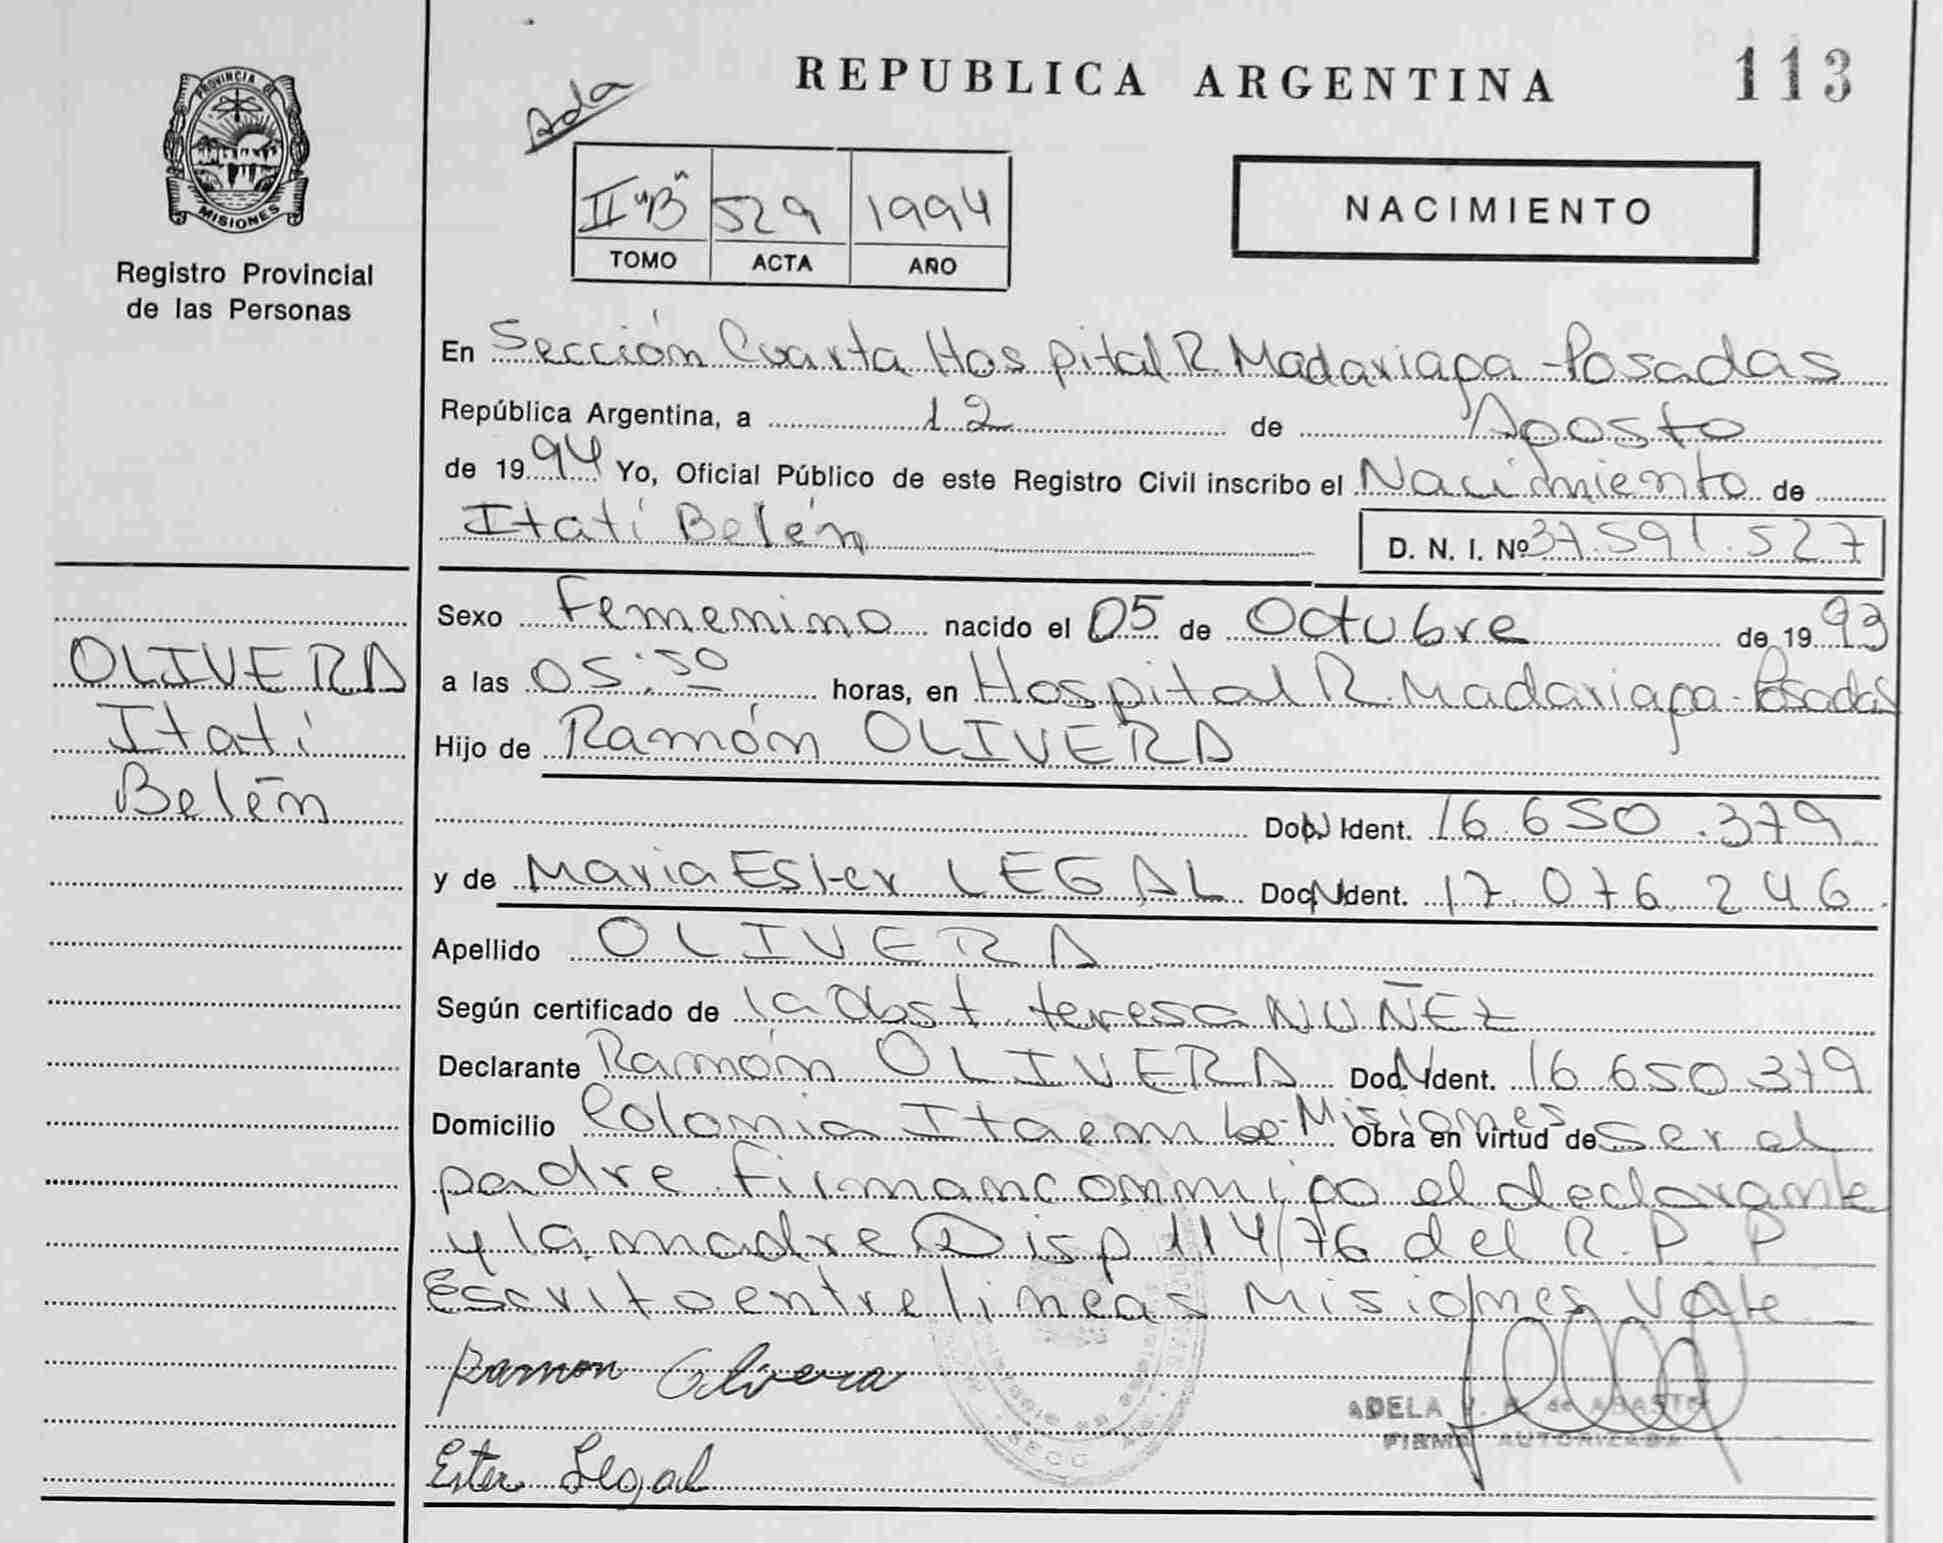 REPUBLICA ARGENTINA
113
Ada
PROVINCIA DE
MISIONES
Registro Provincial
de las Personas
II "B" 529 1994
TOMO ACTA AÑO
NACIMIENTO
En Sección Cuarta Hospital R. Madariaga - Posadas
República Argentina, a 12 de Agosto
de 1994 Yo, Oficial Público de este Registro Civil inscribo el Nacimiento de
Itatí Belén D. N. I. Nº 37.591.527
OLIVERA
Itatí
Belén
Sexo Femenino nacido el 05 de Octubre de 1993
a las 05:50 horas, en Hospital R. Madariaga - Posadas
Hijo de Ramón OLIVERA
Doc. Ident. 16.650.379
y de Maria Ester LEGAL Doc. Ident. 17.076.246
Apellido OLIVERA
Según certificado de la Obst. teresa NUÑEZ
Declarante Ramón OLIVERA Doc. Ident. 16 650 379
Domicilio Colonia Itaembe - Misiones Obra en virtud de ser el
padre. Firman conmigo el declarante
y la madre Disp 114/76 del R.P.P
Escrito entrelineas Misiones Vale
Ramon Olivera
ADELA de ABASTO
FIRMA AUTORIZADA
Ester Legal